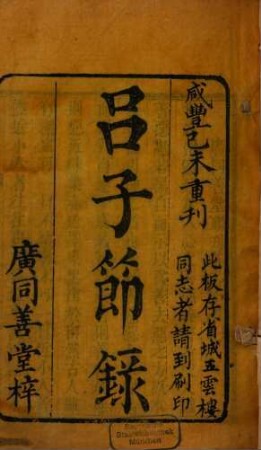 咸豐己未重刊
此板存省城五雲樓
同志者請到刷印
呂子節錄
廣同善堂梓
Bayerische
Staatsbibliothek
München